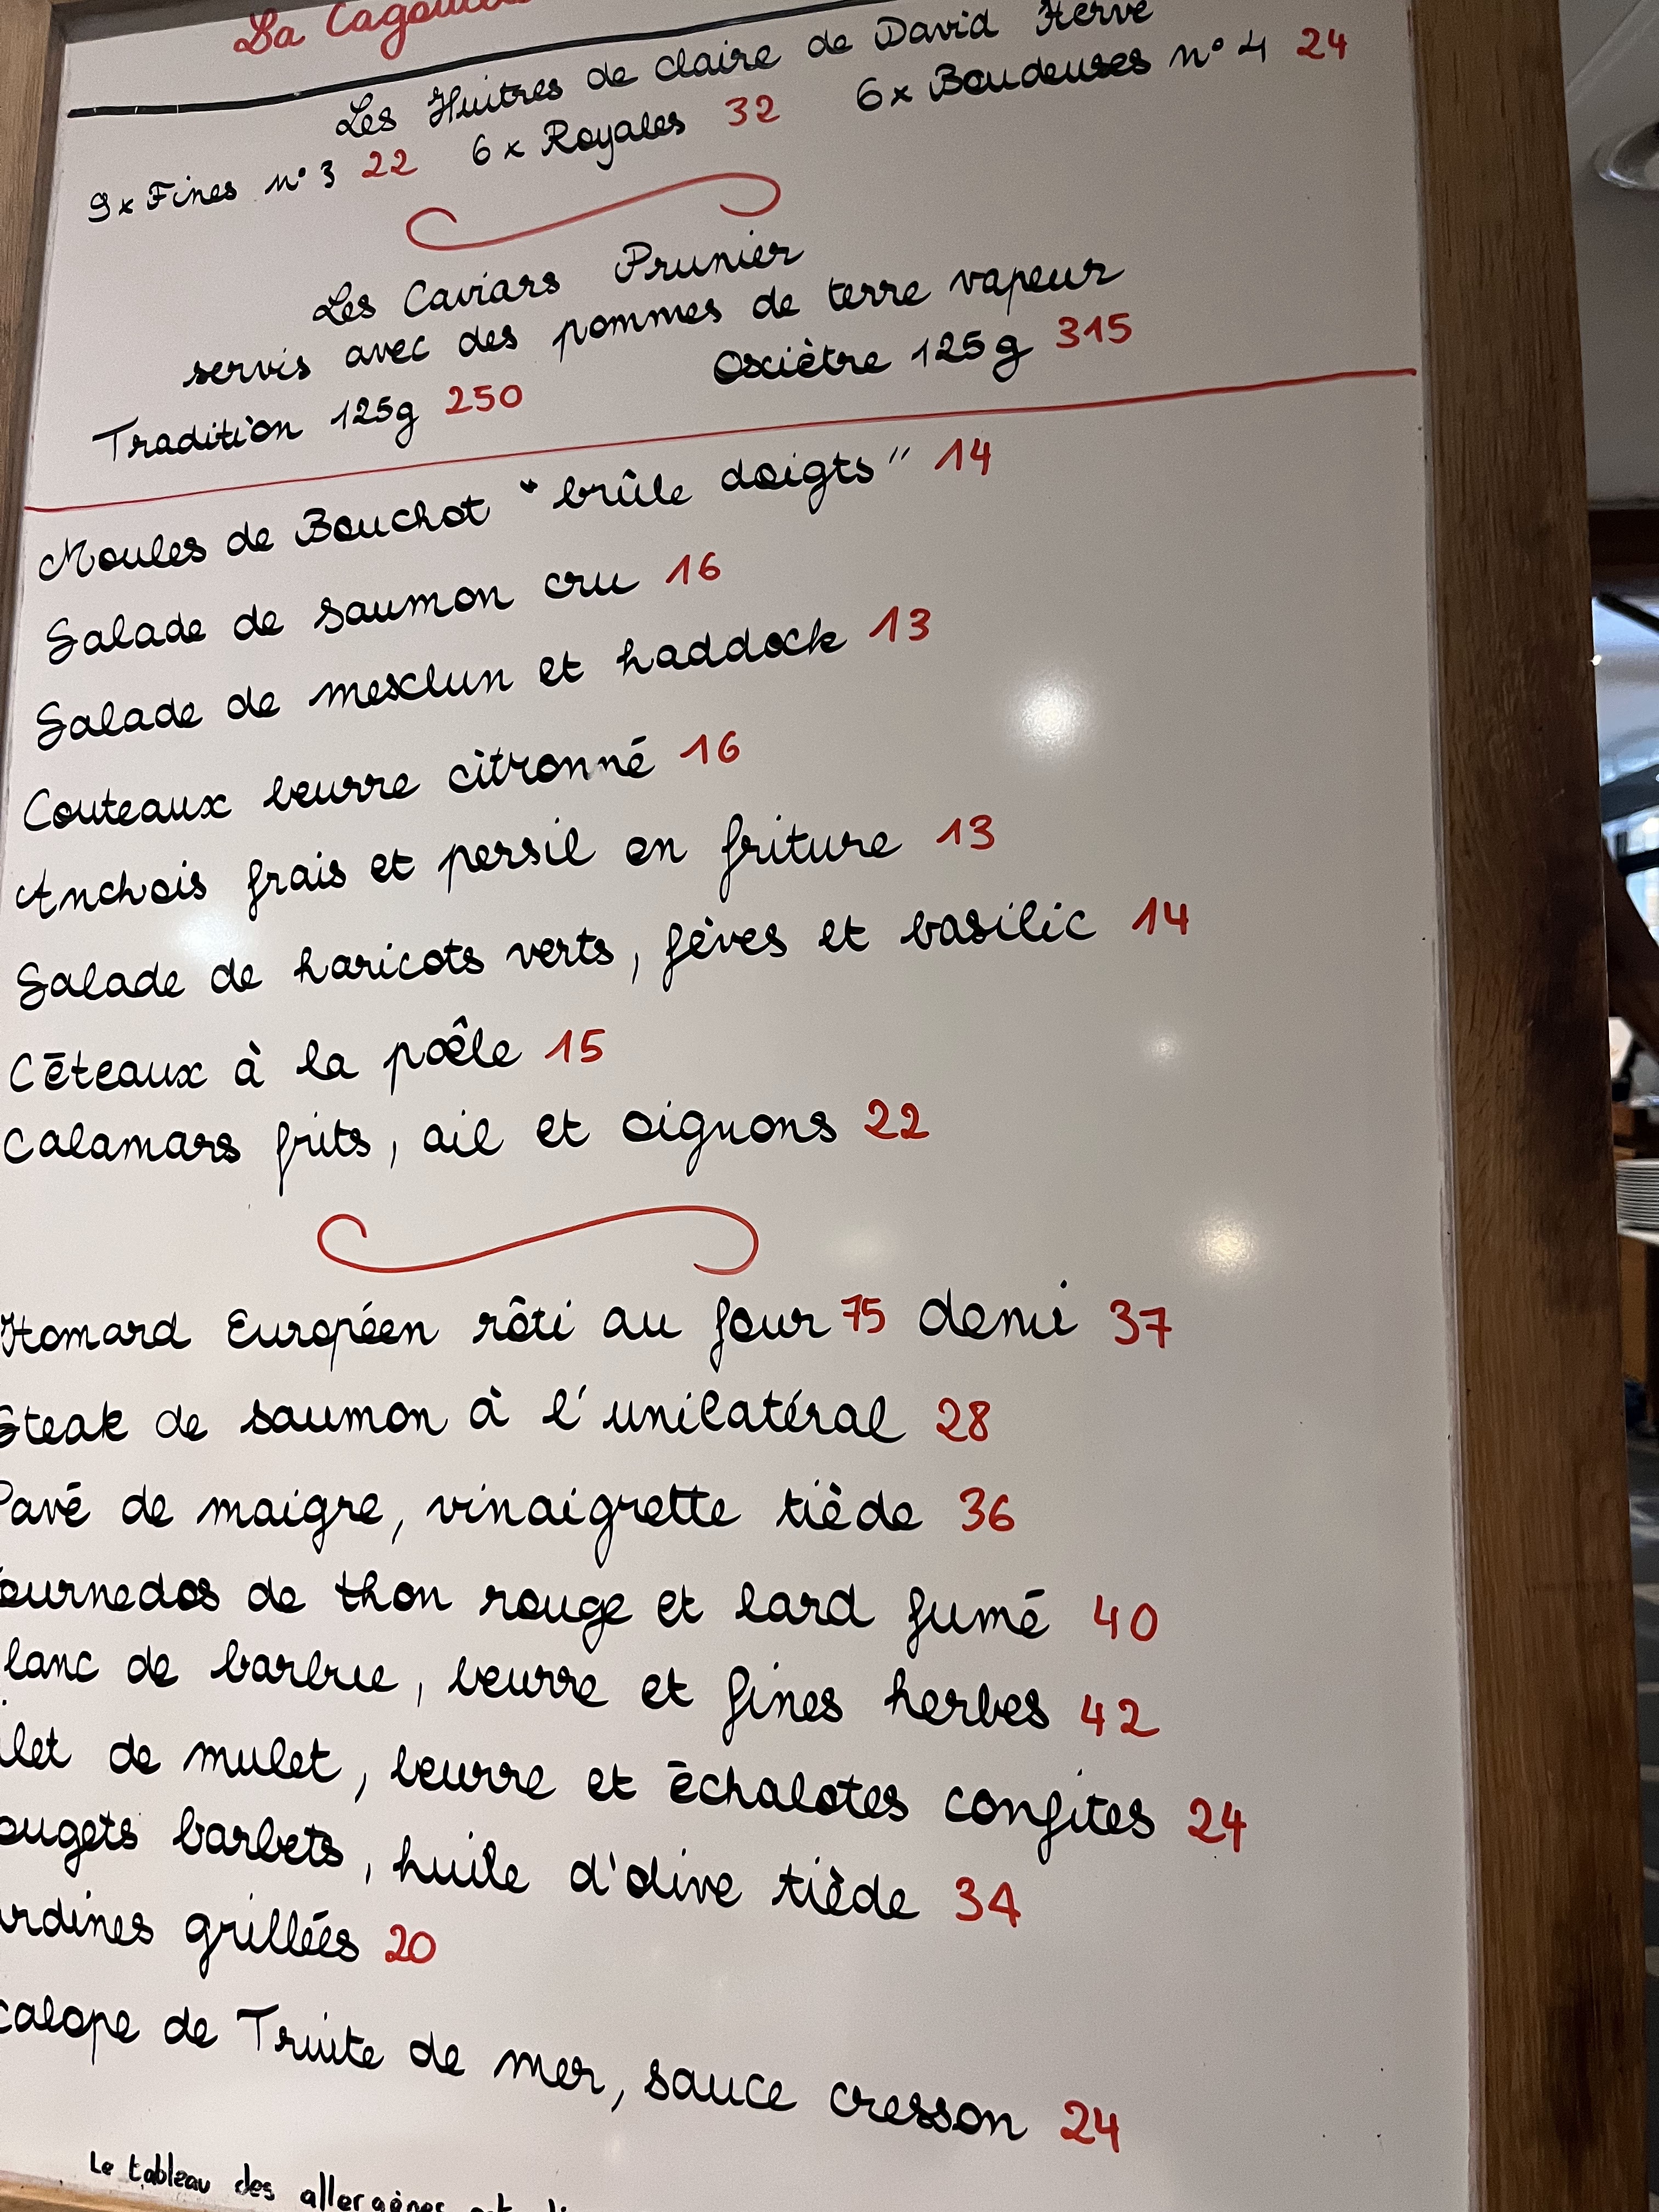 La Cagouille
Les Huitres de claire de David Hervé
9x Fines n° 3 22 6x Royales 32 6x Boudeuses n° 4 24
Les Caviars Prunier
servis avec des pommes de terre vapeur
Tradition 125g 250 Osciètre 125g 315
Moules de Bouchot "brûle doigts" 14
Salade de saumon cru 16
Salade de mesclun et haddock 13
Couteaux beurre citronné 16
Anchois frais et persil en friture 13
Salade de haricots verts, fèves et basilic 14
Céteaux à la poêle 15
Calamars frits, ail et oignons 22
Homard Européen rôti au four 75 demi 37
Steak de saumon à l'unilatéral 28
Pavé de maigre, vinaigrette tiède 36
ournedos de thon rouge et lard fumé 40
lanc de barbue, beurre et fines herbes 42
ilet de mulet, beurre et échalotes confites 24
ougets barbets, huile d'olive tiède 34
ardines grillées 20
calope de Truite de mer, sauce cresson 24
Le tableau des allergènes est